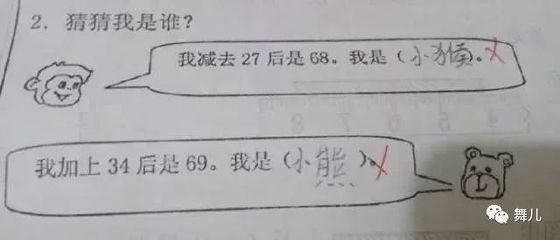 2. 猜猜我是谁?
我减去 27 后是 68。我是(小猴)。
我加上 34 后是 69。我是(小熊)。
舞儿